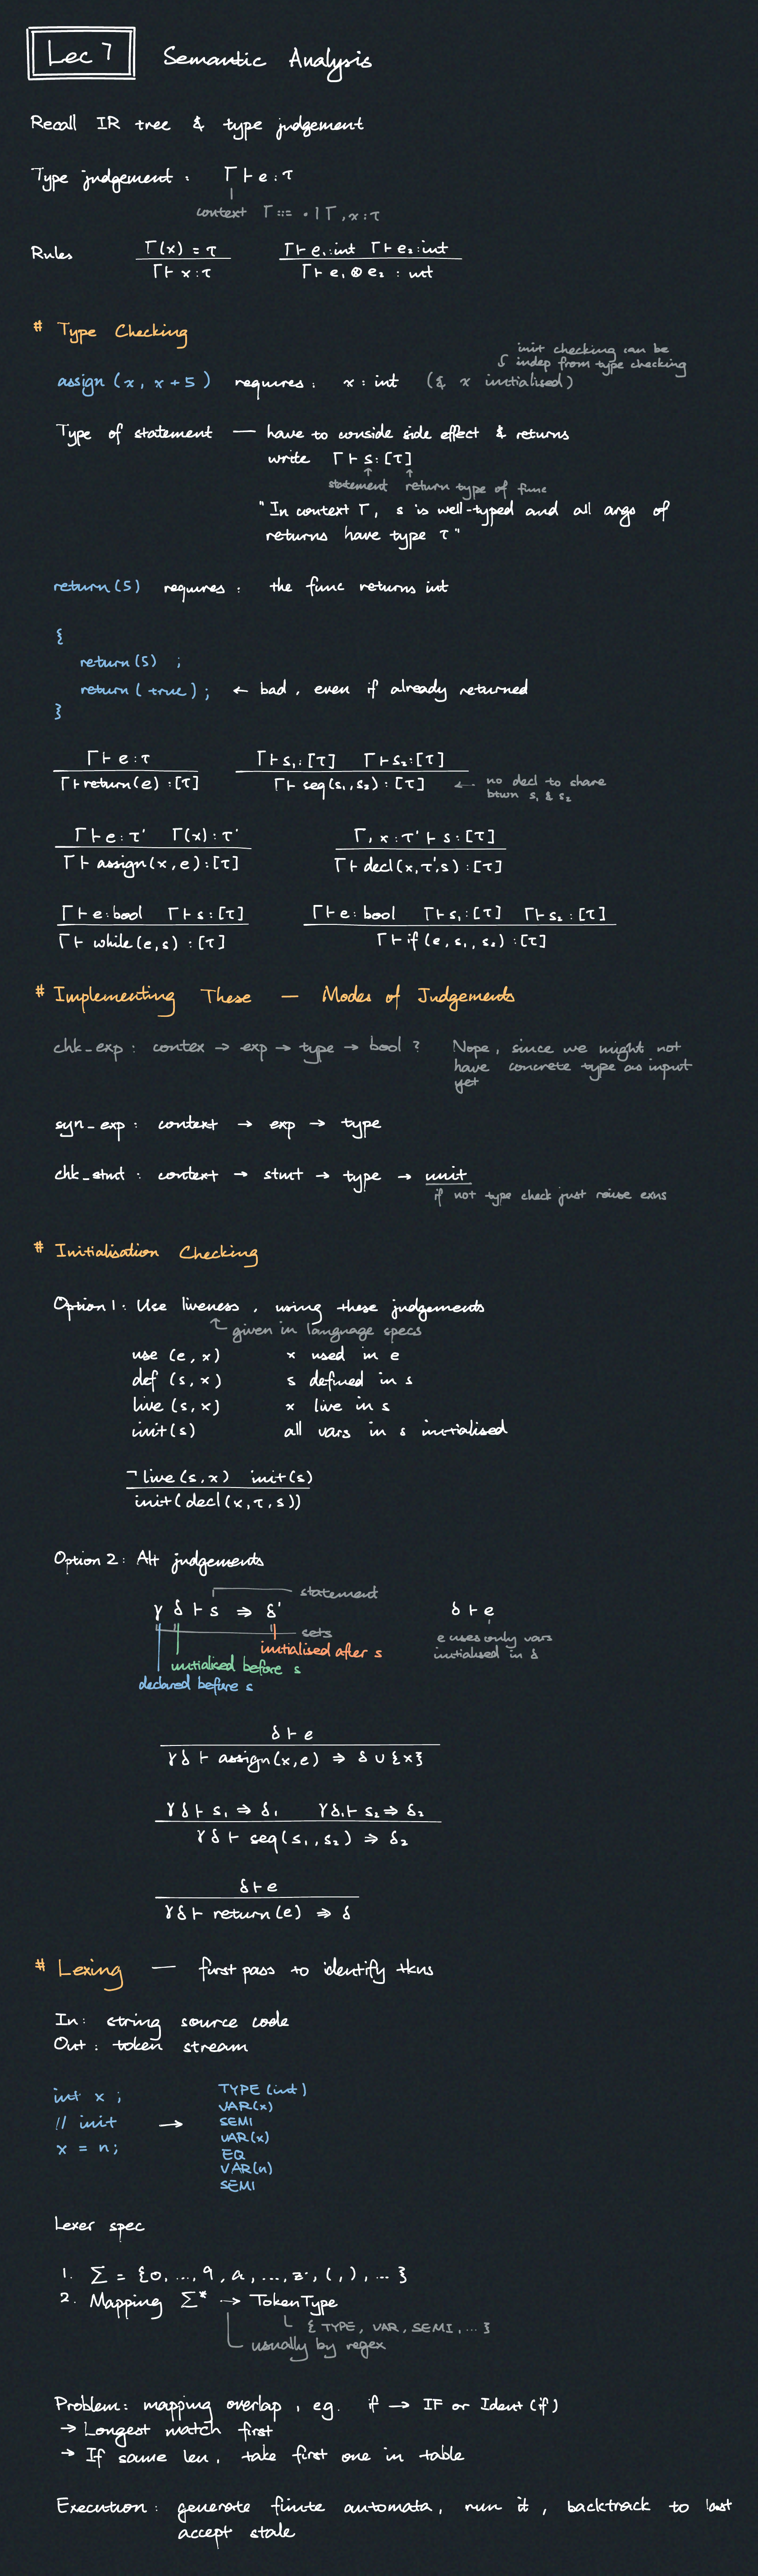 Lec 7 Semantic Analysis
Recall IR tree & type judgement
Type judgement : Γ ⊢ e : τ
context Γ ::= · | Γ, x : τ
Rules
Γ(x) = τ
Γ ⊢ x : τ
Γ ⊢ e₁ : int Γ ⊢ e₂ : int
Γ ⊢ e₁ ⊗ e₂ : int
# Type Checking
init checking can be
indep from type checking
assign (x, x + 5) requires : x : int (& x initialised)
Type of statement — have to conside side effect & returns
write Γ ⊢ s : [τ]
statement return type of func
"In context Γ, s is well-typed and all args of
returns have type τ"
return (5) requires : the func returns int
{
return (5) ;
return (true) ; ← bad, even if already returned
}
Γ ⊢ e : τ
Γ ⊢ return(e) : [τ]
Γ ⊢ s₁ : [τ] Γ ⊢ s₂ : [τ]
Γ ⊢ seq(s₁, s₂) : [τ]
← no decl to share
btwn s₁ & s₂
Γ ⊢ e : τ' Γ(x) : τ'
Γ ⊢ assign(x, e) : [τ]
Γ, x : τ' ⊢ s : [τ]
Γ ⊢ decl(x, τ', s) : [τ]
Γ ⊢ e : bool Γ ⊢ s : [τ]
Γ ⊢ while(e, s) : [τ]
Γ ⊢ e : bool Γ ⊢ s₁ : [τ] Γ ⊢ s₂ : [τ]
Γ ⊢ if (e, s₁, s₂) : [τ]
# Implementing These — Modes of Judgements
chk_exp : contex → exp → type → bool ? Nope, since we might not
have concrete type as input
yet
syn_exp : context → exp → type
chk_stmt : context → stmt → type → unit
if not type check just raise exns
# Initialisation Checking
Option 1 : Use liveness, using these judgements
given in language specs
use (e, x) x used in e
def (s, x) s defined in s
live (s, x) x live in s
init (s) all vars in s initialised
¬ live (s, x) init (s)
init (decl (x, τ, s))
Option 2 : Alt judgements
statement
γ δ ⊢ s ⇒ δ' δ ⊢ e
sets
e uses only vars
initialised in δ
initialised after s
initialised before s
declared before s
δ ⊢ e
γ δ ⊢ assign(x, e) ⇒ δ ∪ {x}
γ δ ⊢ s₁ ⇒ δ₁ γ δ₁ ⊢ s₂ ⇒ δ₂
γ δ ⊢ seq(s₁, s₂) ⇒ δ₂
δ ⊢ e
γ δ ⊢ return(e) ⇒ δ
# Lexing — first pass to identify tkns
In : string source code
Out : token stream
int x ;
// init →
x = n;
TYPE (int)
VAR(x)
SEMI
VAR(x)
EQ
VAR(n)
SEMI
Lexer spec
1. Σ = {0, ..., 9, a, ..., z, (, ), ... }
2. Mapping Σ* → TokenType
{ TYPE, VAR, SEMI, ... }
usually by regex
Problem : mapping overlap, eg. if → IF or Ident (if)
→ Longest match first
→ If same len, take first one in table
Execution : generate finite automata, run it, backtrack to last
accept state